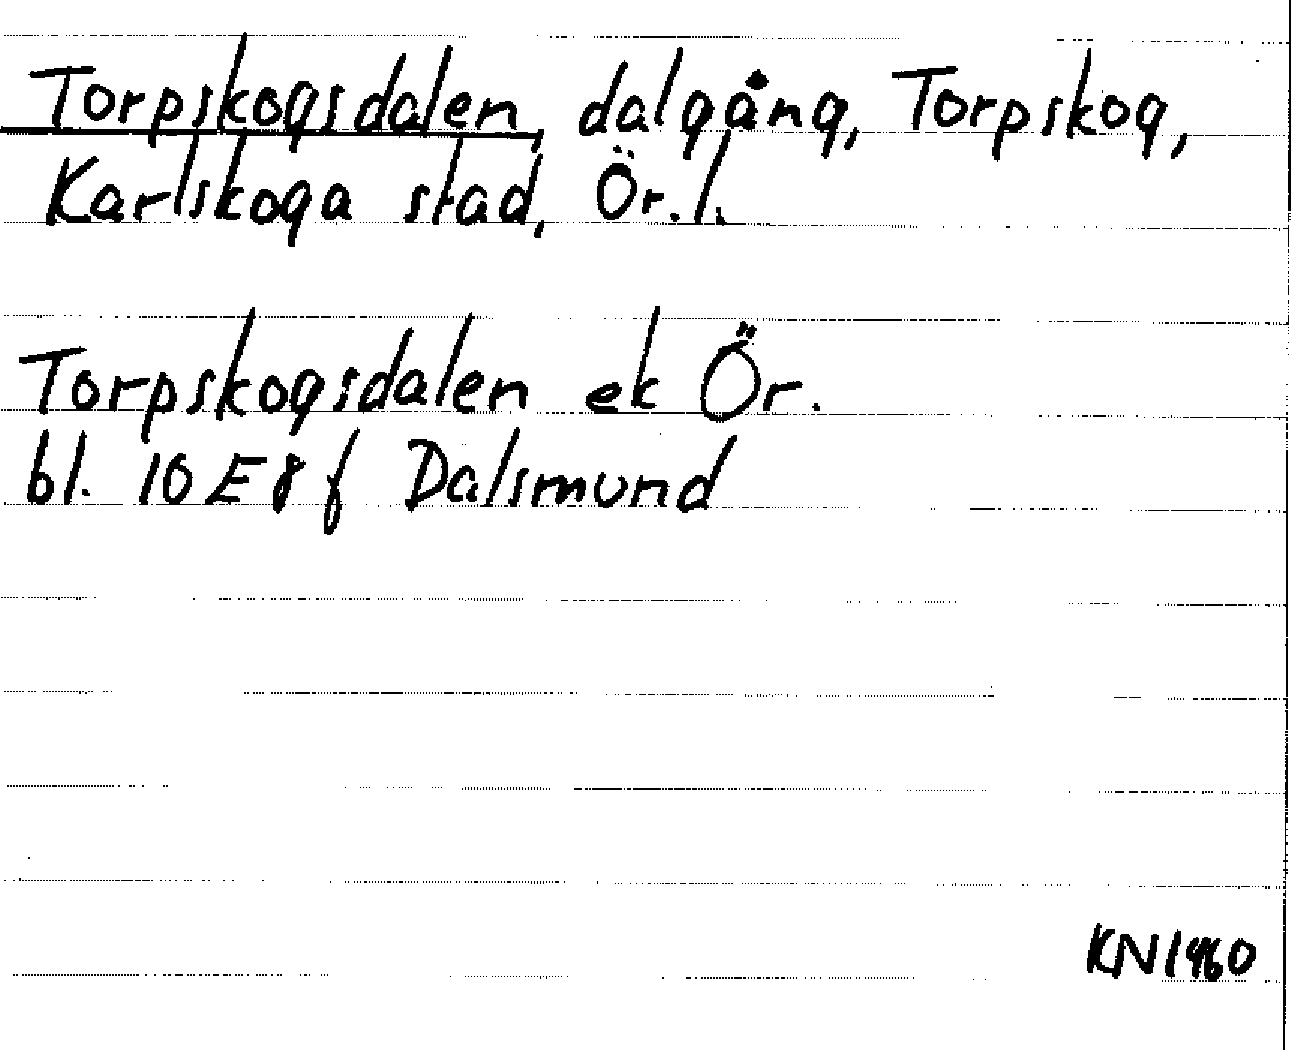 Torpskogsdalen, dalgång, Torpskog,
Karlskoga stad, Ör. l.
Torpskogsdalen ek Ör.
bl. 10 E 8 f Dalsmund
KN 1960